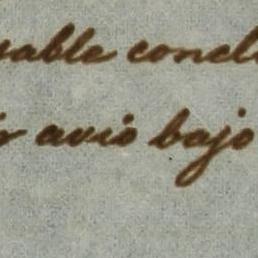 sable concl
avio bajo